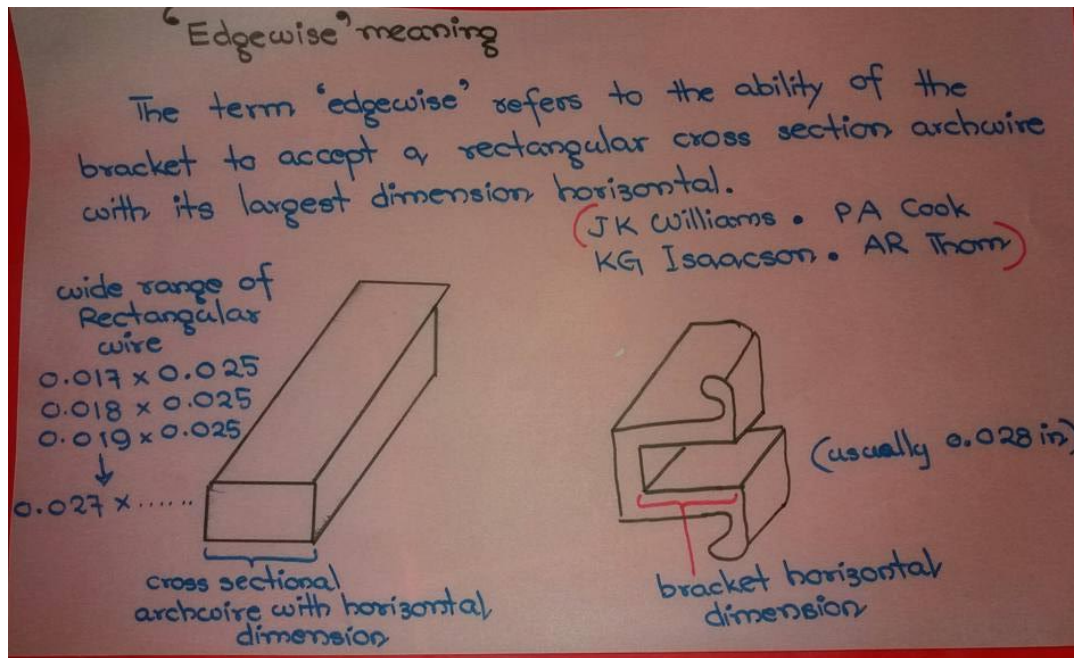 ‘Edgewise’ meaning
The term ‘edgewise’ refers to the ability of the
bracket to accept a rectangular cross section archwire
with its largest dimension horizontal.
(JK Williams . PA Cook
KG Isaacson . AR Thom)
wide range of
Rectangular
wire
0.017 x 0.025
0.018 x 0.025
0.019 x 0.025
↓
0.027 x ......
cross sectional
archwire with horizontal
dimension
(usually 0.028 in)
bracket horizontal
dimension